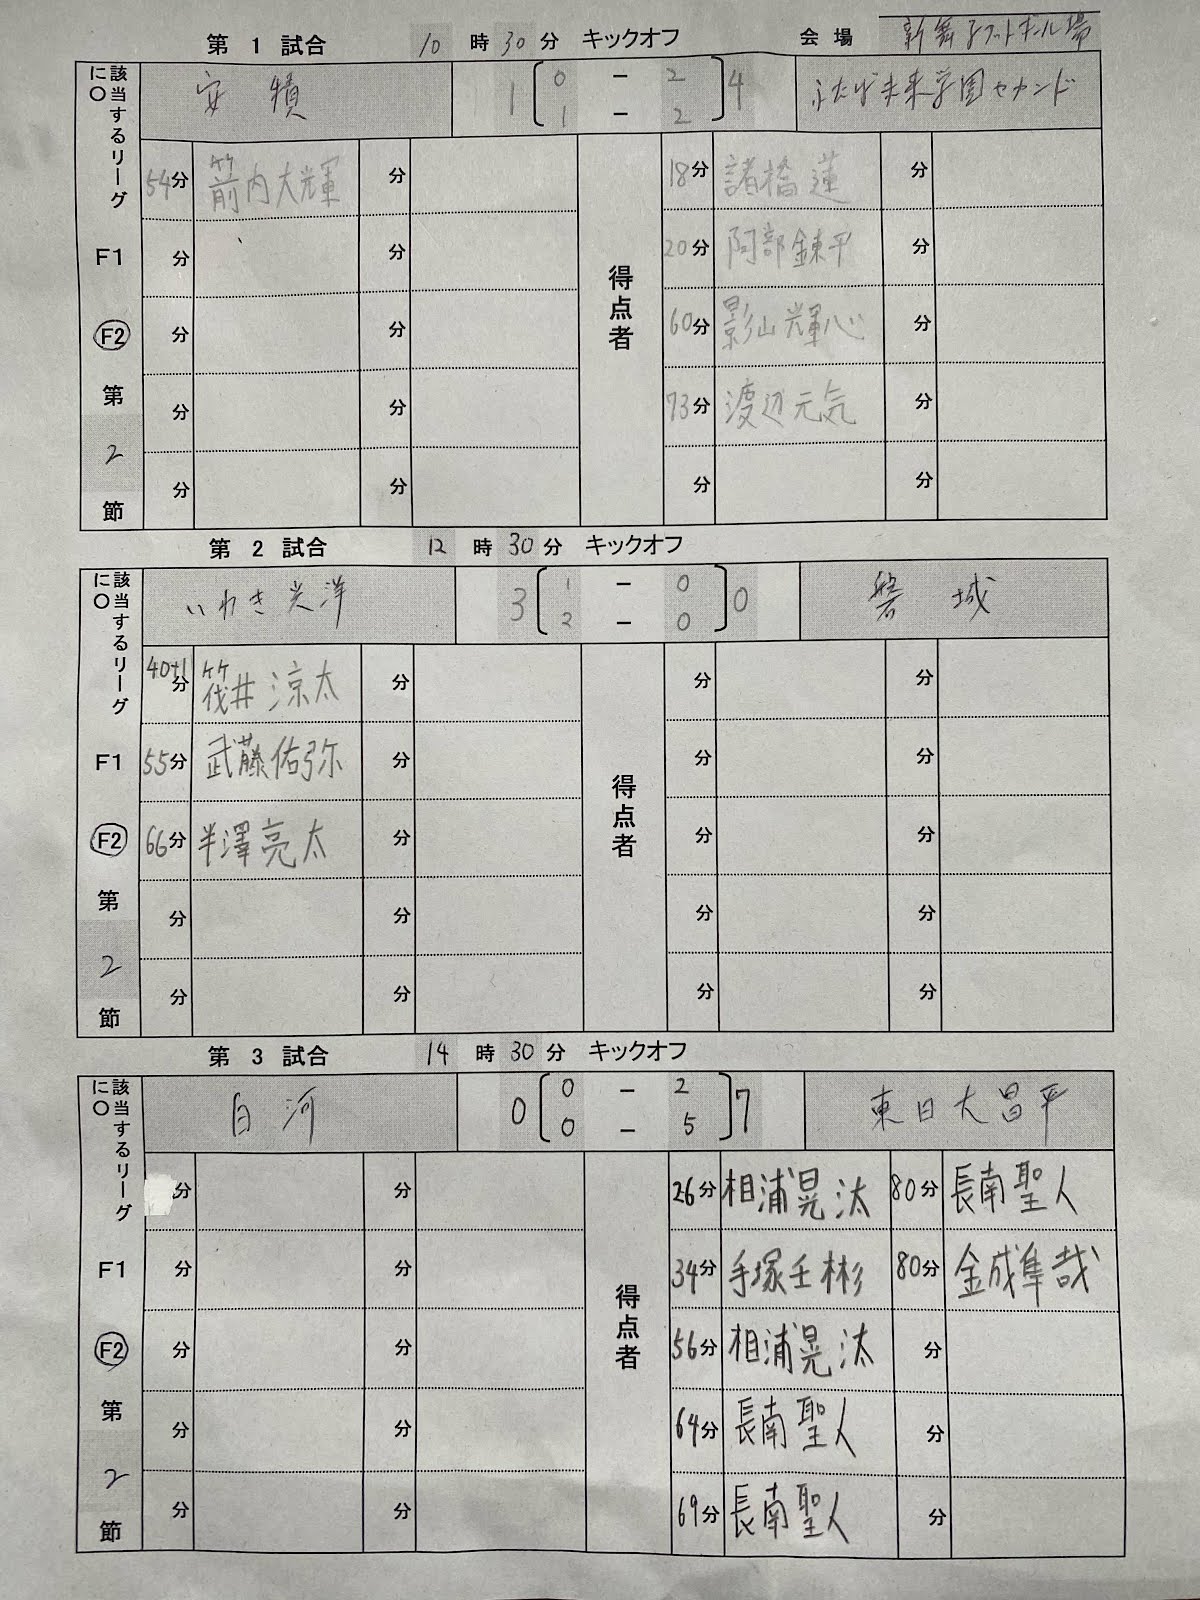 第 1 試合 10 時 30 分 キックオフ 会場 新舞子フットボール場
該当するリーグに〇 F1 F2 第 2 節
安積 1 0 - 2 4 ふたば未来学園セカンド
1 - 2
得点者
54分 箭内大輝 分 18分 諸橋蓮 分
分 分 20分 阿部錬平 分
分 分 60分 影山輝心 分
分 分 73分 渡辺元気 分
分 分 分 分
第 2 試合 12 時 30 分 キックオフ
該当するリーグに〇 F1 F2 第 2 節
いわき光洋 3 1 - 0 0 磐城
2 - 0
得点者
40+1分 筏井涼太 分 分 分
55分 武藤佑弥 分 分 分
66分 半澤亮太 分 分 分
分 分 分 分
分 分 分 分
第 3 試合 14 時 30 分 キックオフ
該当するリーグに〇 F1 F2 第 2 節
白河 0 0 - 2 7 東日大昌平
0 - 5
得点者
分 分 26分 相浦晃汰 80分 長南聖人
分 分 34分 手塚壬彬 80分 金成隼哉
分 分 56分 相浦晃汰 分
分 分 64分 長南聖人 分
分 分 69分 長南聖人 分